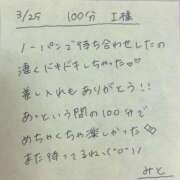 3/25 100分 I様
ノーパンで待ち合わせしたの
凄くドキドキしちゃった♡
差し入れもありがとう!!
あっという間の100分で
めちゃくちゃ楽しかった♡
また待ってるねっ(^o^)/
みと